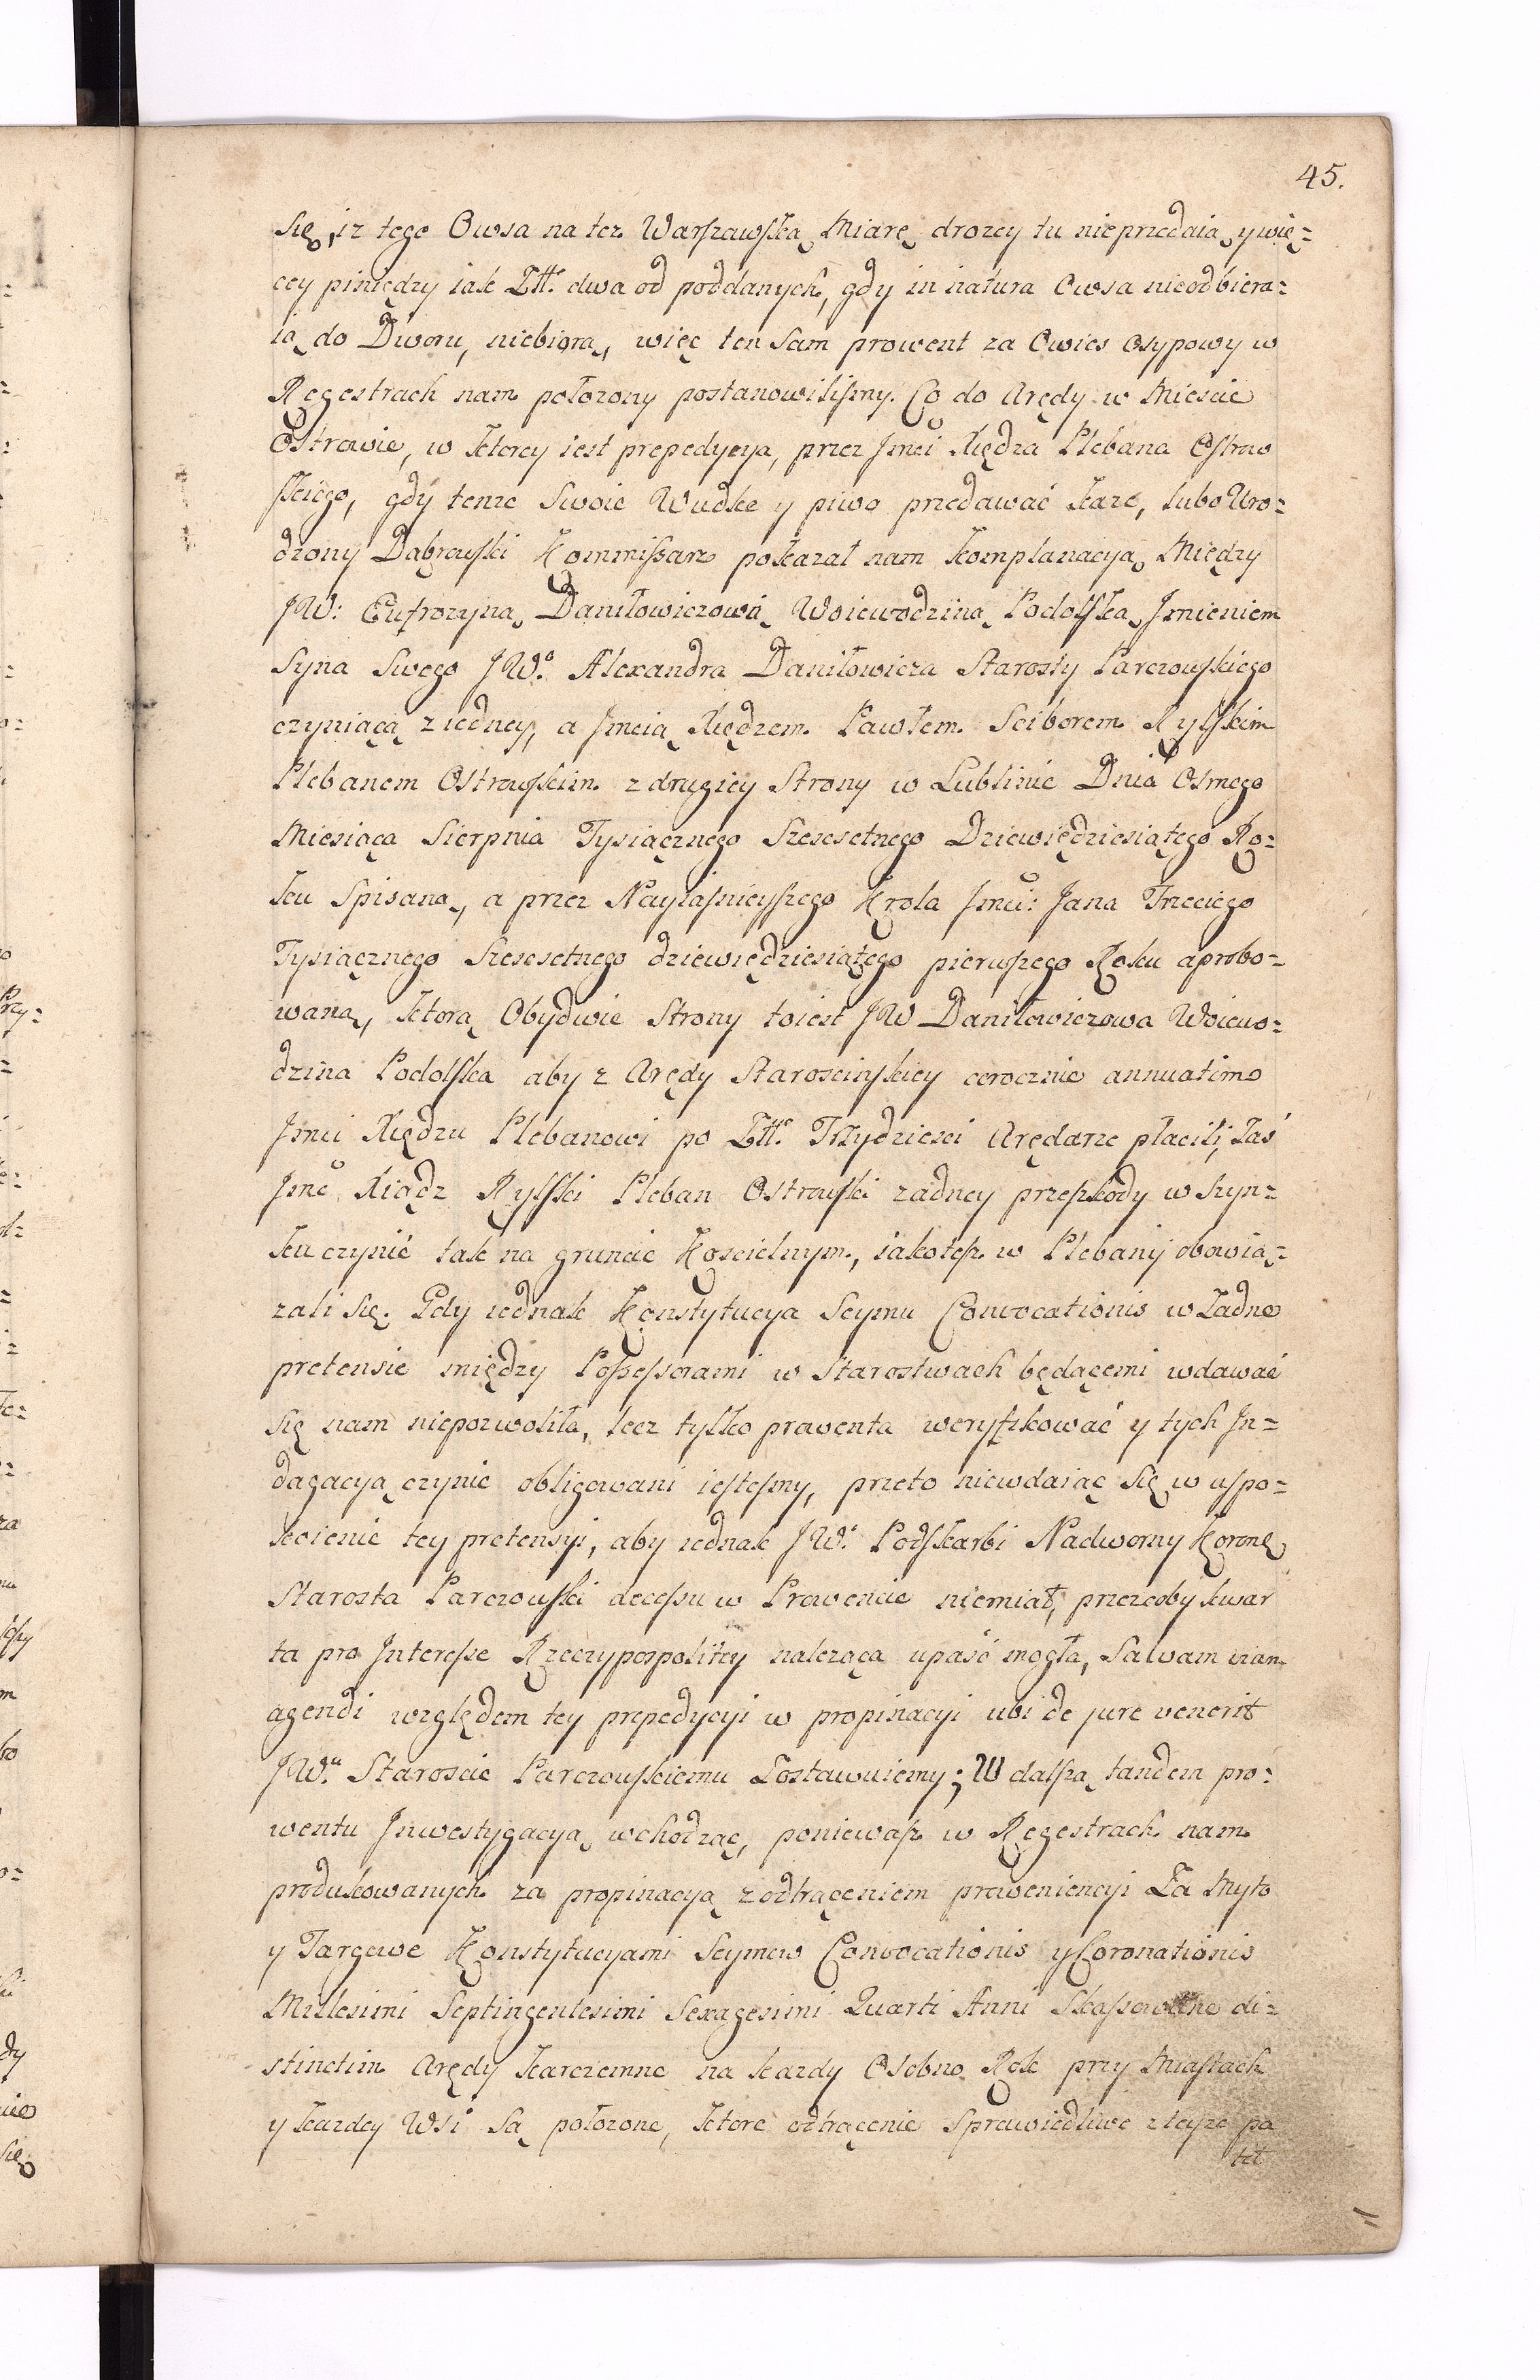 45.
Się, iz tego Owsa na tez Warszawską Miarę drozey tu nieprzedaią, y wię=
cey piniędzy iak Złł. dwa od poddanych, gdy in natura Owsa nieodbiera=
ią do Dworu, niebiorą, więc ten Sam prowent za Owies Osypowy w
Regestrach nam połozony postanowilismy. Co do Arędy w Miescie
Ostrowie, w ktorey iest prepedycya, przez Jmci Xiędza Plebana Ostrow
skiego, gdy tenze Swoie Wudke y piwo przedawać kaze, lubo Uro=
dzony Dąbrowski Kommissarz pokazał nam komplanacyą Między
JW: Eufrozyną Daniłowiczową Woiewodziną Podolską Jmieniem
Syna Swego JWo. Alexandra Daniłowicza Starosty Parczowskiego
czyniącą z iedney, a Jmcią Xiędzem Pawłem Sciborem Rylskim
Plebanem Ostrowskim z drugiey Strony w Lublinie Dnia Osmego
Miesiąca Sierpnia Tysiącznego Szescsetnego Dziewiędziesiątego Ro=
ku Spisaną, a przez Nayiasnieyszego Krola Jmci: Jana Trzeciego
Tysiącznego Szescsetnego dziewiędziesiątego pierwszego Roku aprobo=
waną, ktorą Obydwie Strony toiest JW Daniłowiczowa Woiewo=
dzina Podolska aby z Arędy Staroscinskiey corocznie annuatim
Jmci Xiędzu Plebanowi po Złł. Trzydziesci Arędarze płacili, Zaś
Jmć Xiądz Rylski Pleban Ostrowski zadney przeszkody w Szyn=
ku czynić tak na gruncie Koscielnym, iakotesz w Plebanij obowią=
zali się. Gdy iednak Konstytucya Seymu Convocationis w Zadne
pretensie między Possessorami w Starostwach będącemi wdawać
się nam niepozwoliła, lecz tylko prowenta weryfikować y tych In=
dagacyą czynic obligowani iestesmy, przeto niewdaiąc Się w uspo=
koienie tey pretensyi, aby iednak JW. Podskarbi Nadworny Koronny
Starosta Parczowski decessu w Prowencie niemiał, przezcoby kwar
ta pro Interesse Rzeczypospolitey naleząca upaść mogła, Salvam viam
agendi względem tey prepedycyi w propinacyi ubi de jure venerit
JWu. Staroscie Parczowskiemu Zostawuiemy; W dalszą tandem pro=
wentu Inwestygacyą wchodząc, poniewasz w Regestrach nam
produkowanych za propinacyą z odtrąceniem proweniencyi Za Myto
y Targowe Konstytucyami Seymow Convocationis y Coronationis
Millesimi Septingentesimi Sexagesimi Quarti Anni Skassowane di=
stinctim Arędy karczemne na kazdy Osobno Rok przy Miastach
y kazdey Wsi Są połozone, ktore odtrącenie Sprawiedliwe z teyze pa
tet